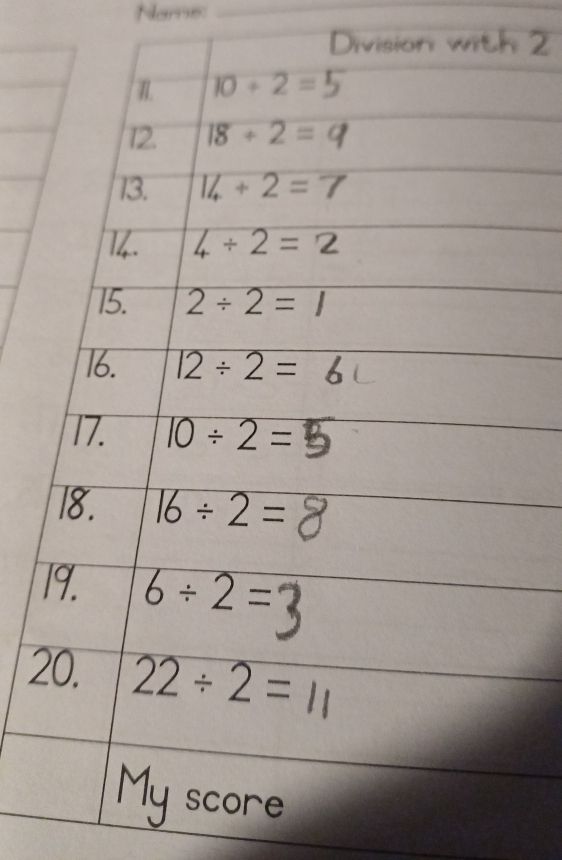 Name:
Division with 2
11. 10 ÷ 2 = 5
12. 18 ÷ 2 = 9
13. 14 ÷ 2 = 7
14. 4 ÷ 2 = 2
15. 2 ÷ 2 = 1
16. 12 ÷ 2 = 6
17. 10 ÷ 2 = 5
18. 16 ÷ 2 = 8
19. 6 ÷ 2 = 3
20. 22 ÷ 2 = 11
My score